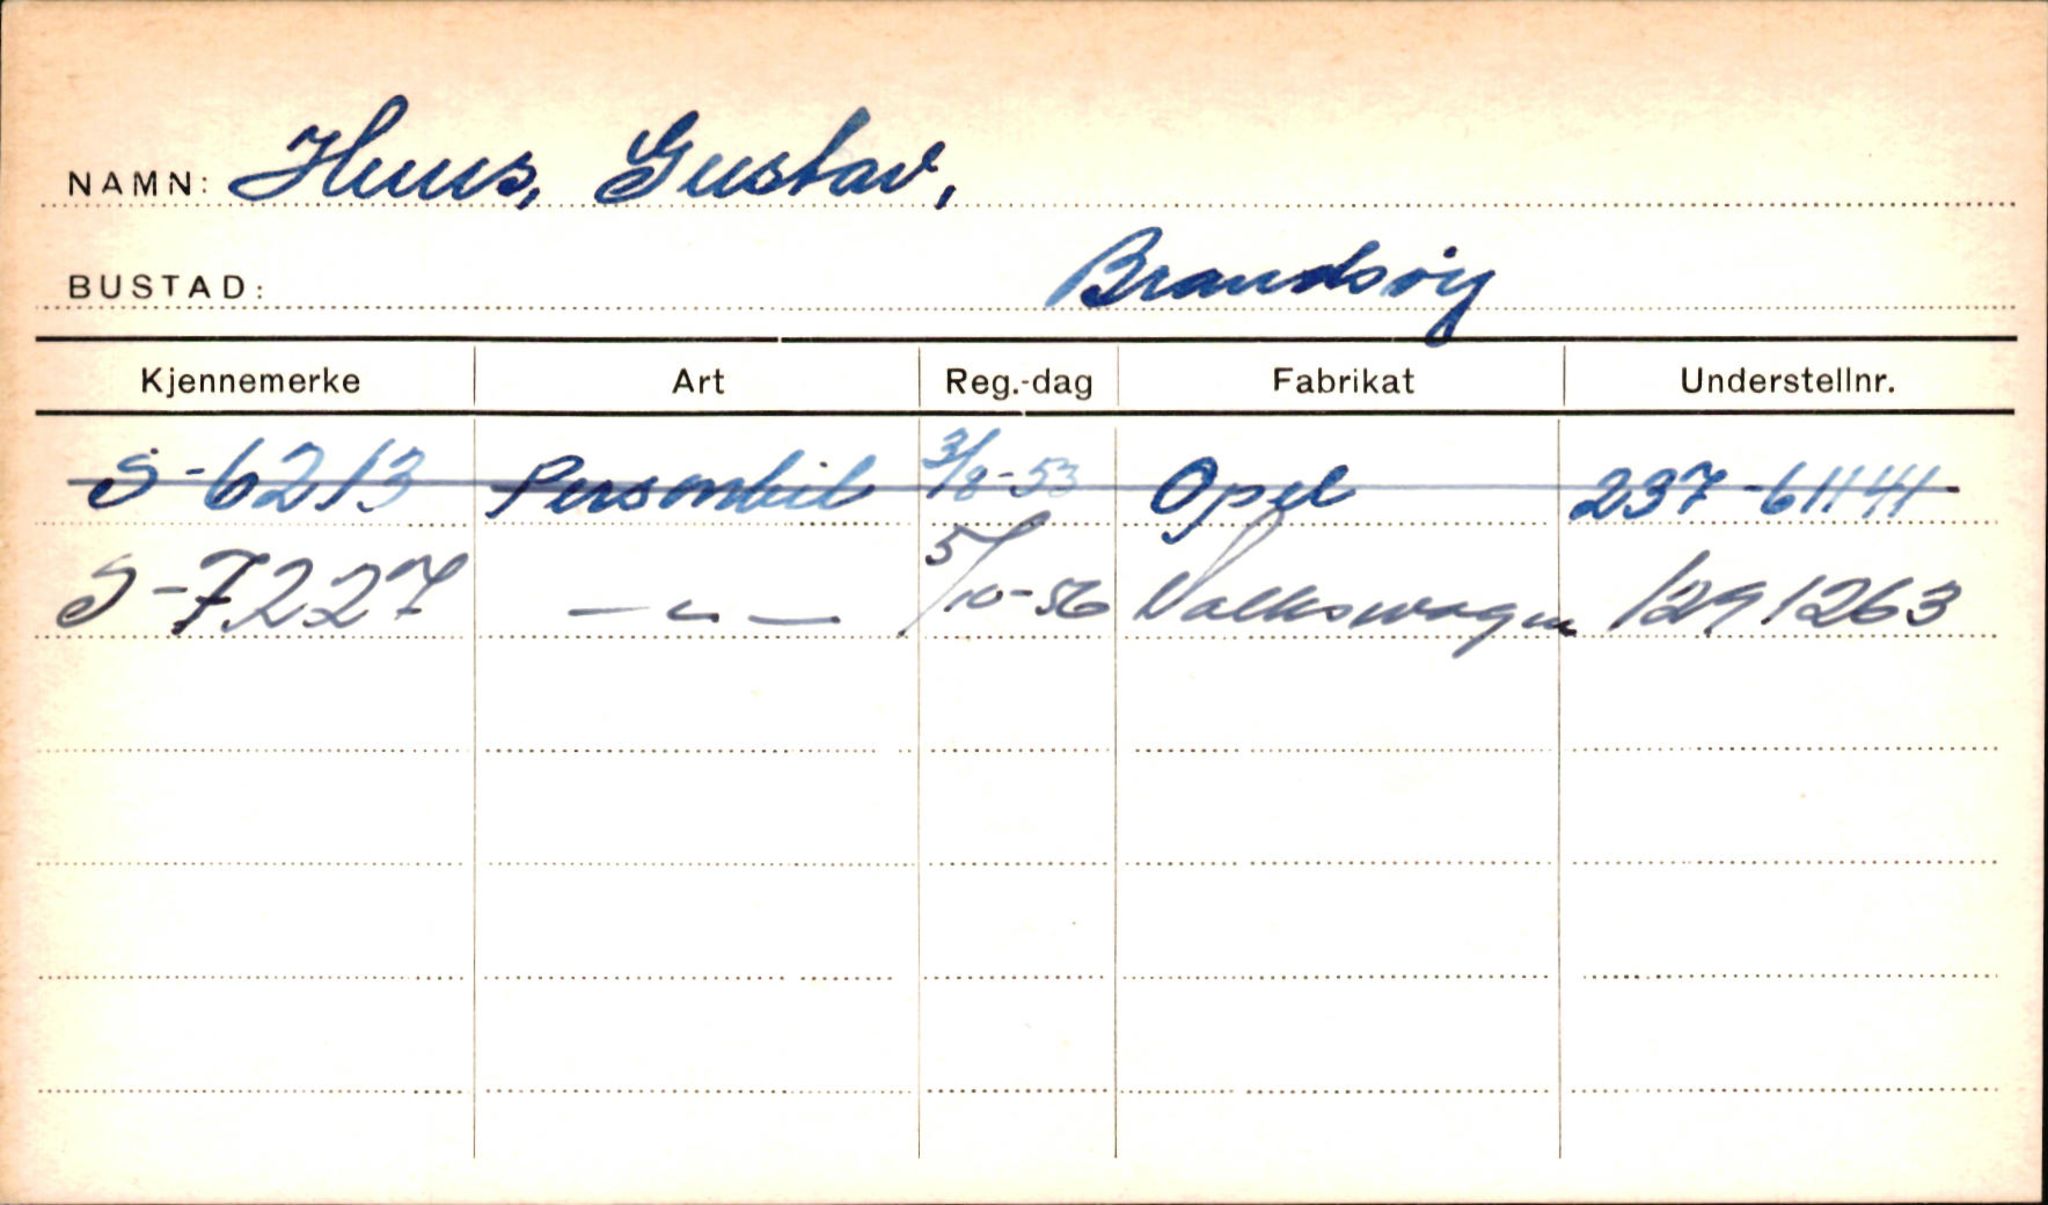 NAMN: Huus, Gustav,
BUSTAD: Brandsøy
Kjennemerke Art Reg.-dag Fabrikat Understellnr.
S-6213 Personbil 3/8-53 Opel 237-61141
S-7227 — " — 5/10-56 Volkswagen 1291263